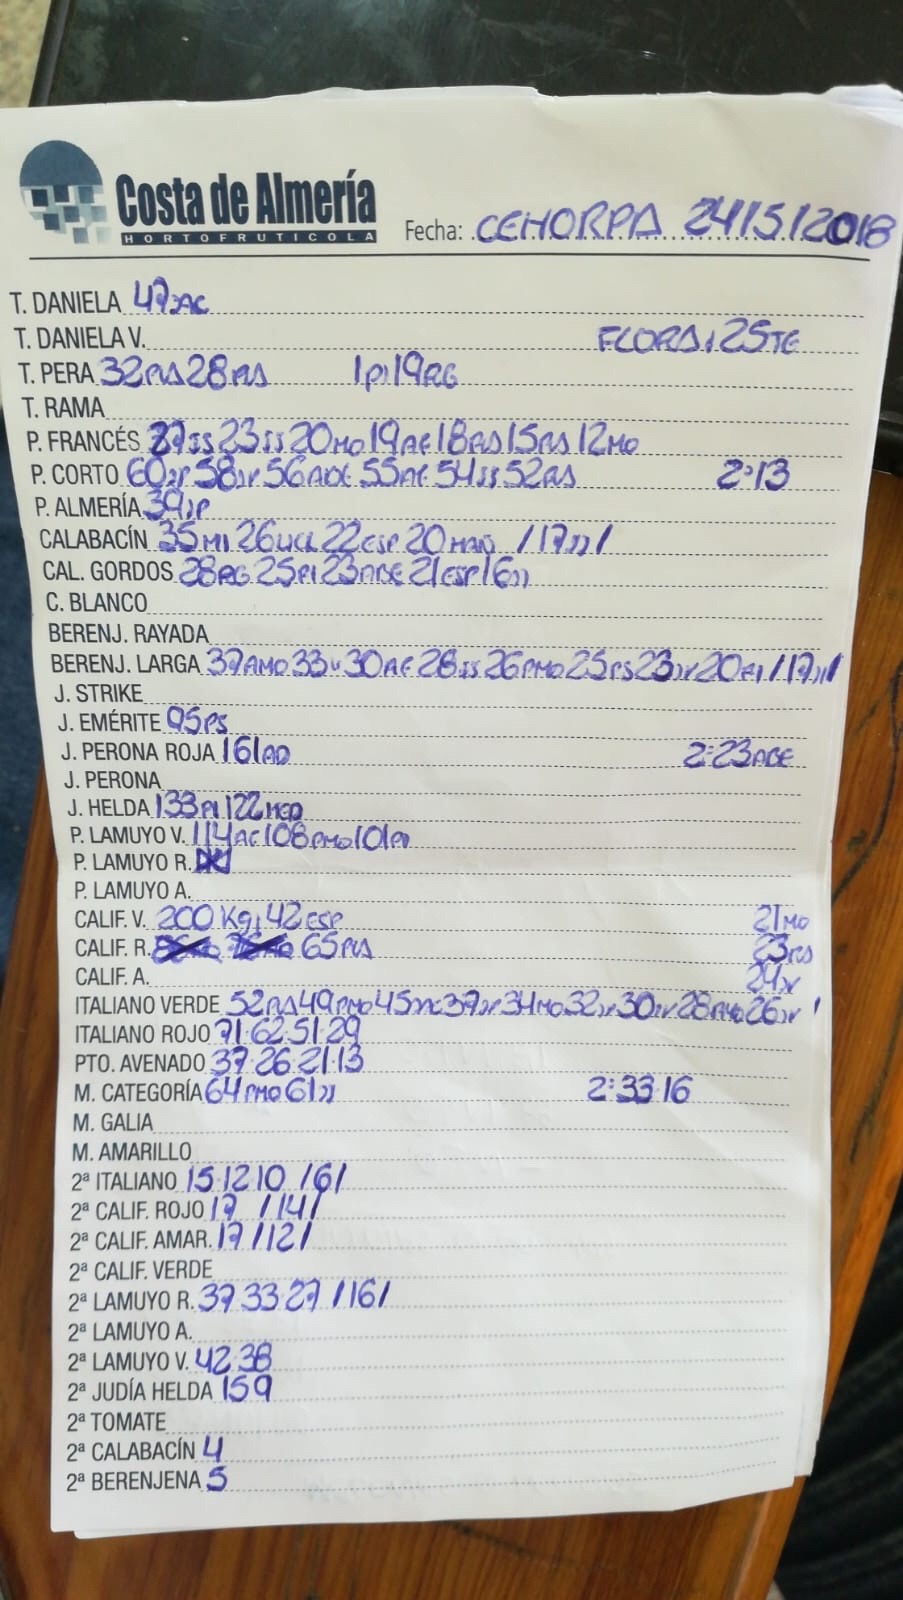 Costa de Almería
HORTOFRUTICOLA
Fecha: CEHORPA 24/5/2018
T. DANIELA 47
T. DANIELA V. FLORA: 25TE
T. PERA 32 28 19RG
T. RAMA
P. FRANCÉS 37SS 23SS 20MO 19AE 18RS 15RS 12MO
P. CORTO 60 58 56 55AE 54SS 52RS 2:13
P. ALMERÍA 39
CALABACÍN 35MI 26 22ESP 20 /17JJ/
CAL. GORDOS 28RG 25PI 23ABE 21ESP 16JJ
C. BLANCO
BERENJ. RAYADA
BERENJ. LARGA 37AMO 33 30AE 28SS 26PMO 25PS 23 20 /17JJ/
J. STRIKE
J. EMÉRITE 95PS
J. PERONA ROJA 161AD 2:23ABE
J. PERONA
J. HELDA 133PI 122MED
P. LAMUYO V. 114AE 108PMO 101PI
P. LAMUYO R.
P. LAMUYO A.
CALIF. V. 200 Kg, 42ESP 21MO
CALIF. R. 65 23RS
CALIF. A. 24
ITALIANO VERDE 52 49PMO 45 37 34MO 32 30 28 26
ITALIANO ROJO 71·62·51·29
PTO. AVENADO 37·26·21·13
M. CATEGORÍA 64PMO 61JJ 2:33·16
M. GALIA
M. AMARILLO
2ª ITALIANO 15·12·10 /6/
2ª CALIF. ROJO 17 /14/
2ª CALIF. AMAR. 17 /12/
2ª CALIF. VERDE
2ª LAMUYO R. 37·33·27 /16/
2ª LAMUYO A.
2ª LAMUYO V. 42·38
2ª JUDÍA HELDA 159
2ª TOMATE
2ª CALABACÍN 4
2ª BERENJENA 5